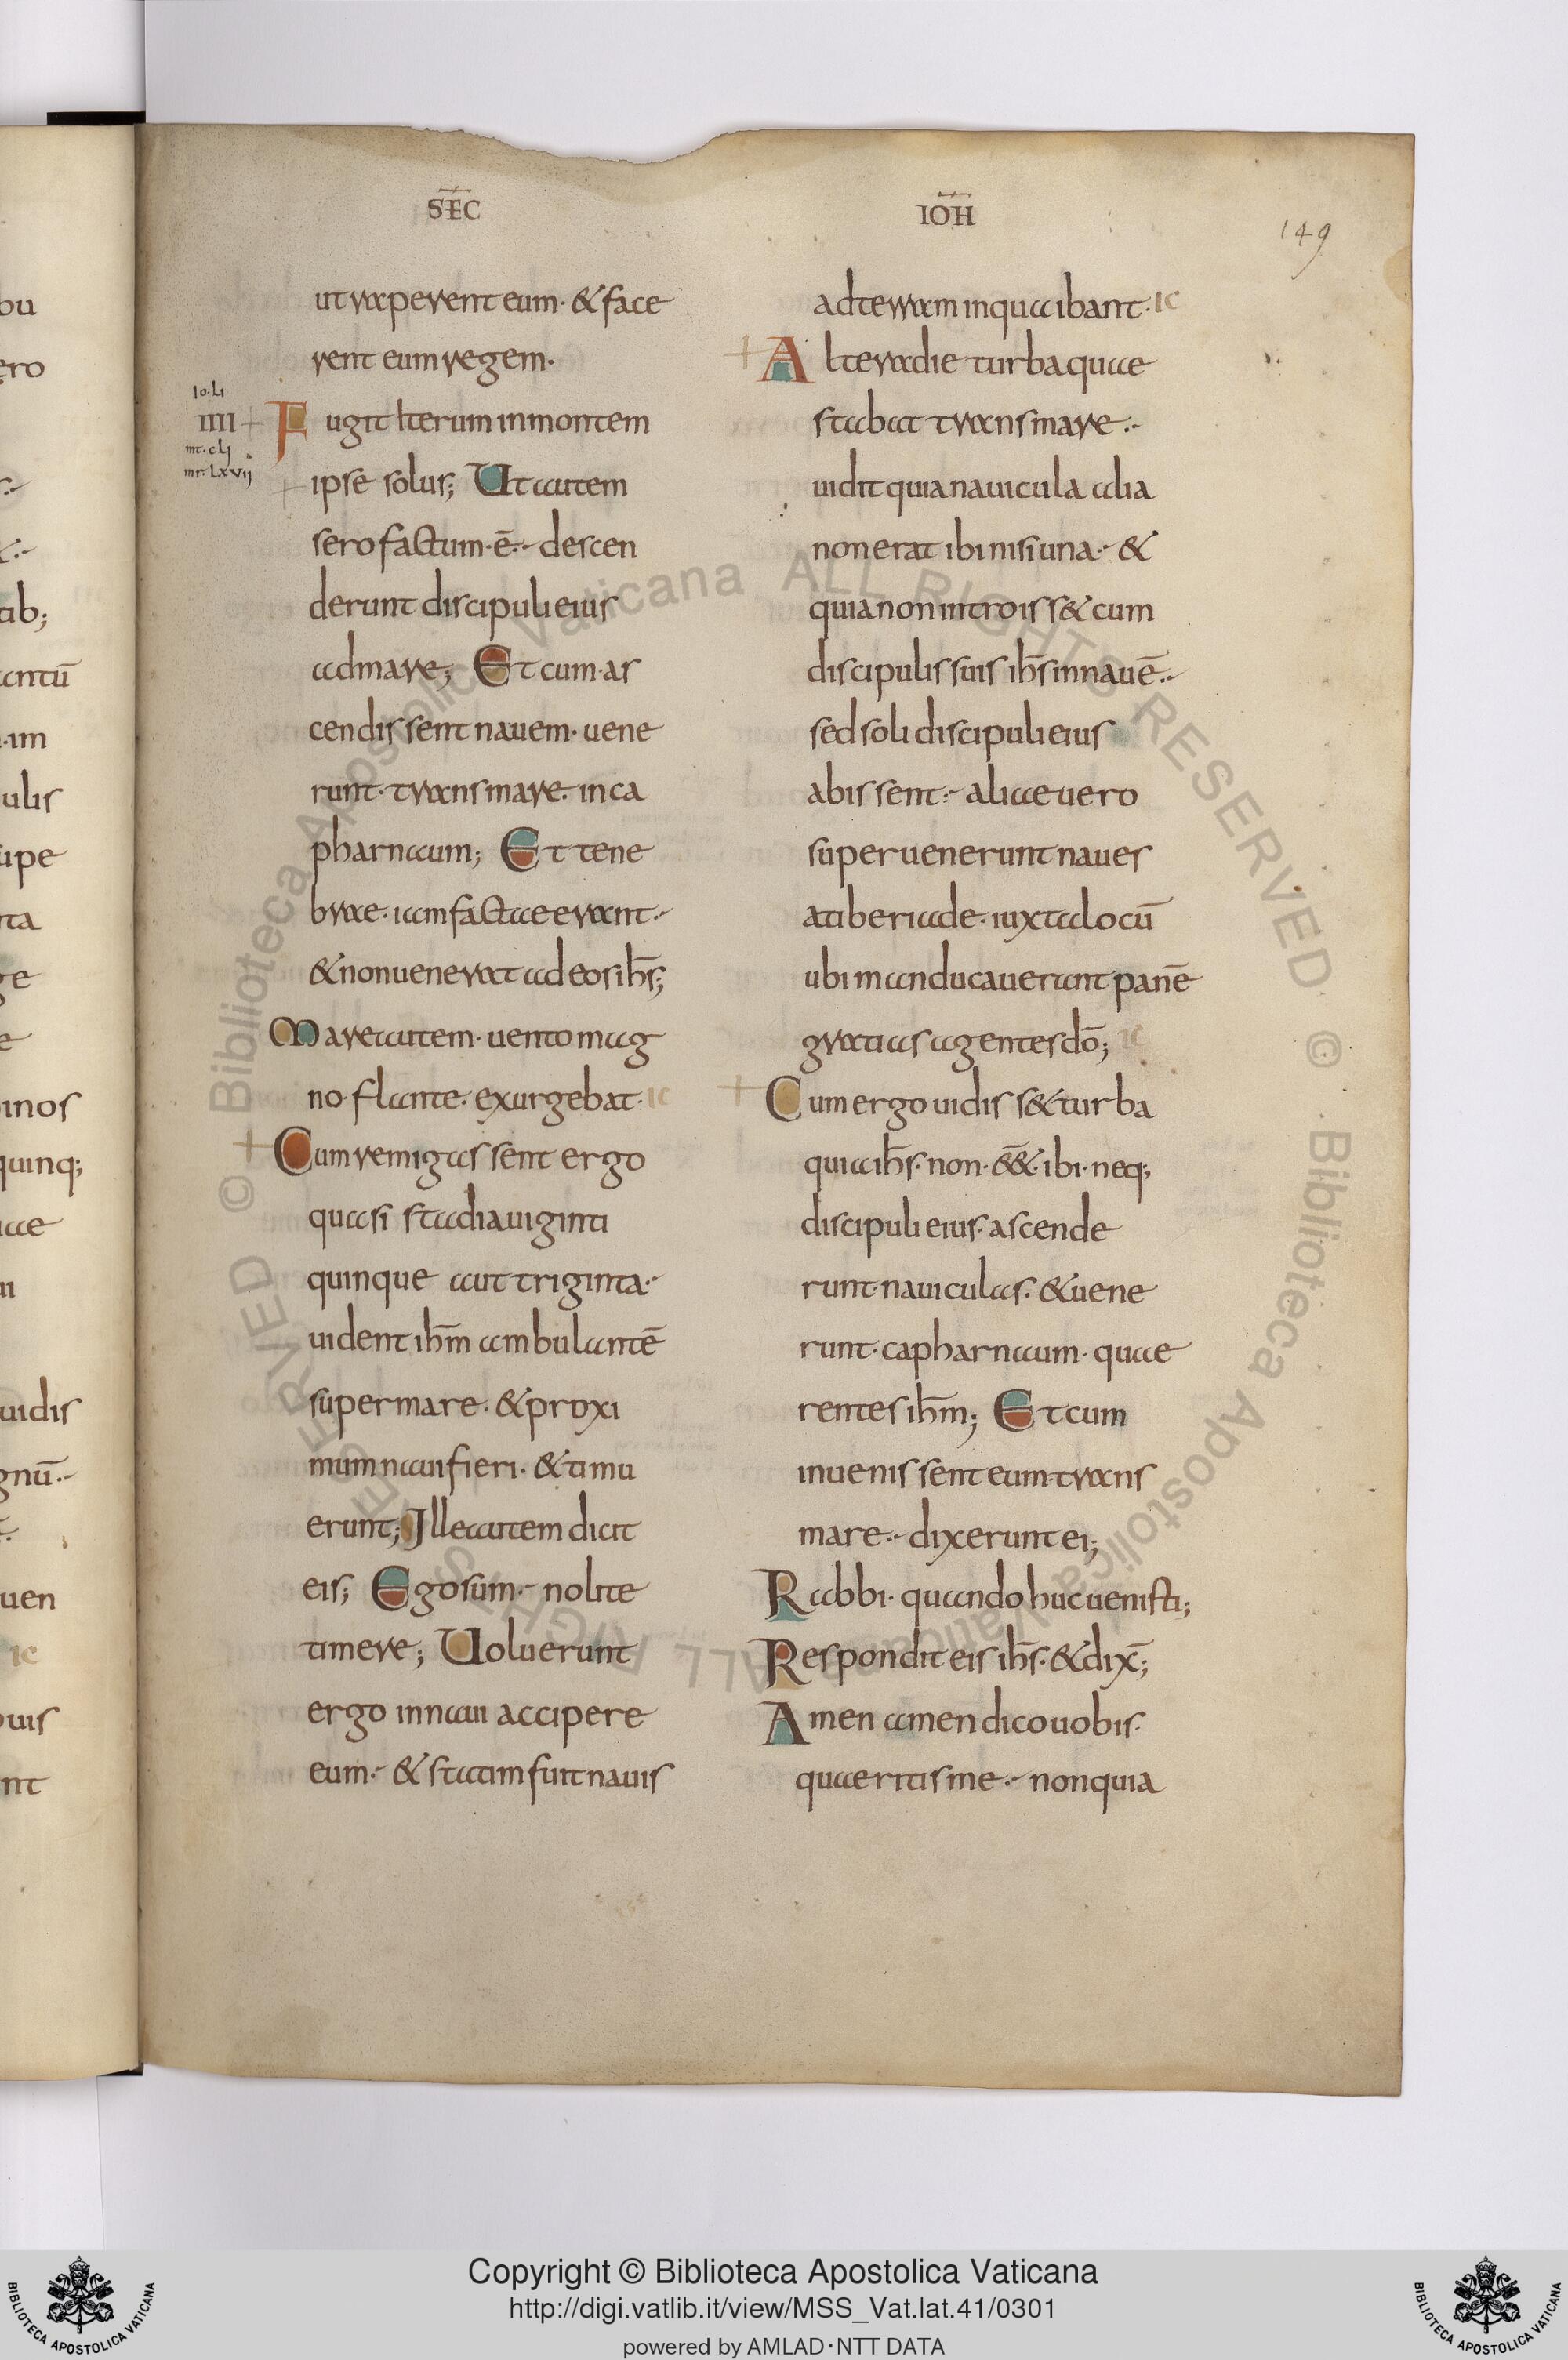 SEC
IOH
149
ut raperent eum· & face
rent eum regem·
io·li
IIII
mt·clj
mr·Lxvij
Fugit iterum in montem
ipse solus; Ut autem
sero factum·ē·- descen
derunt discipuli eius
ad mare; Et cum·as
cendissent nauem· uene
runt· trans mare· in ca
pharnaum; Et tene
brae· iam factae erant·-
& non uenerat ad eos ih̄s;
Mare autem· uento mag
no· flante· exurgebat· IC
Cum remigassent ergo
quasi stadia uiginti
quinque aut triginta·-
uident ih̄m ambulantē
super mare· & proxi
mum naui fieri· & timu
erunt; Ille autem dicit
eis; Ego sum·- nolite
timere; Uoluerunt
ergo in naui accipere
eum·- & statim fuit nauis
ad terram in qua ibant· IC
Altera die turba quae
stabat trans mare·-
uidit quia nauicula alia
non erat ibi nisi una·- &
quia non introiss& cum
discipulis suis ih̄s in nauē·-
sed soli discipuli eius
abissent·- aliae uero
superuenerunt naues
a tiberiade· iuxta locū
ubi manducauerant panē
gratias agentes dō; IC
Cum ergo uidiss& turba
quia ih̄s· non· &̄&· ibi· neq;
discipuli eius· ascende
runt· nauiculas· & uene
runt· capharnaum· quae
rentes ih̄m; Et cum
inuenissent eum· trans
mare·- dixerunt ei;
Rabbi· quando huc uenisti;
Respondit eis ih̄s· & dix̄;
Amen amen dico uobis·
quaeritis me·- non quia
Copyright © Biblioteca Apostolica Vaticana
http://digi.vatlib.it/view/MSS_Vat.lat.41/0301
powered by AMLAD·NTT DATA
BIBLIOTECA APOSTOLICA VATICANA
BIBLIOTECA APOSTOLICA VATICANA
© Biblioteca Apostolica Vaticana ALL RIGHTS RESERVED © Biblioteca Apostolica Vaticana ALL RIGHTS RESERVED